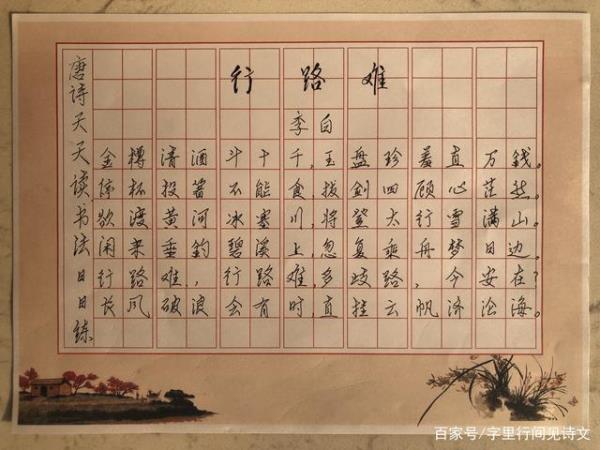 唐诗天天读书法日日练
行路难
李白
金樽清酒斗十千，玉盘珍羞直万錢。
停杯投箸不能食，拔剑四顾心茫然。
欲渡黄河冰塞川，将登太行雪满山。
闲来垂钓碧溪上，忽复乘舟梦日边。
行路难，行路难，多歧路，今安在？
长风破浪会有时，直挂云帆济沧海。
百家号/字里行间见诗文